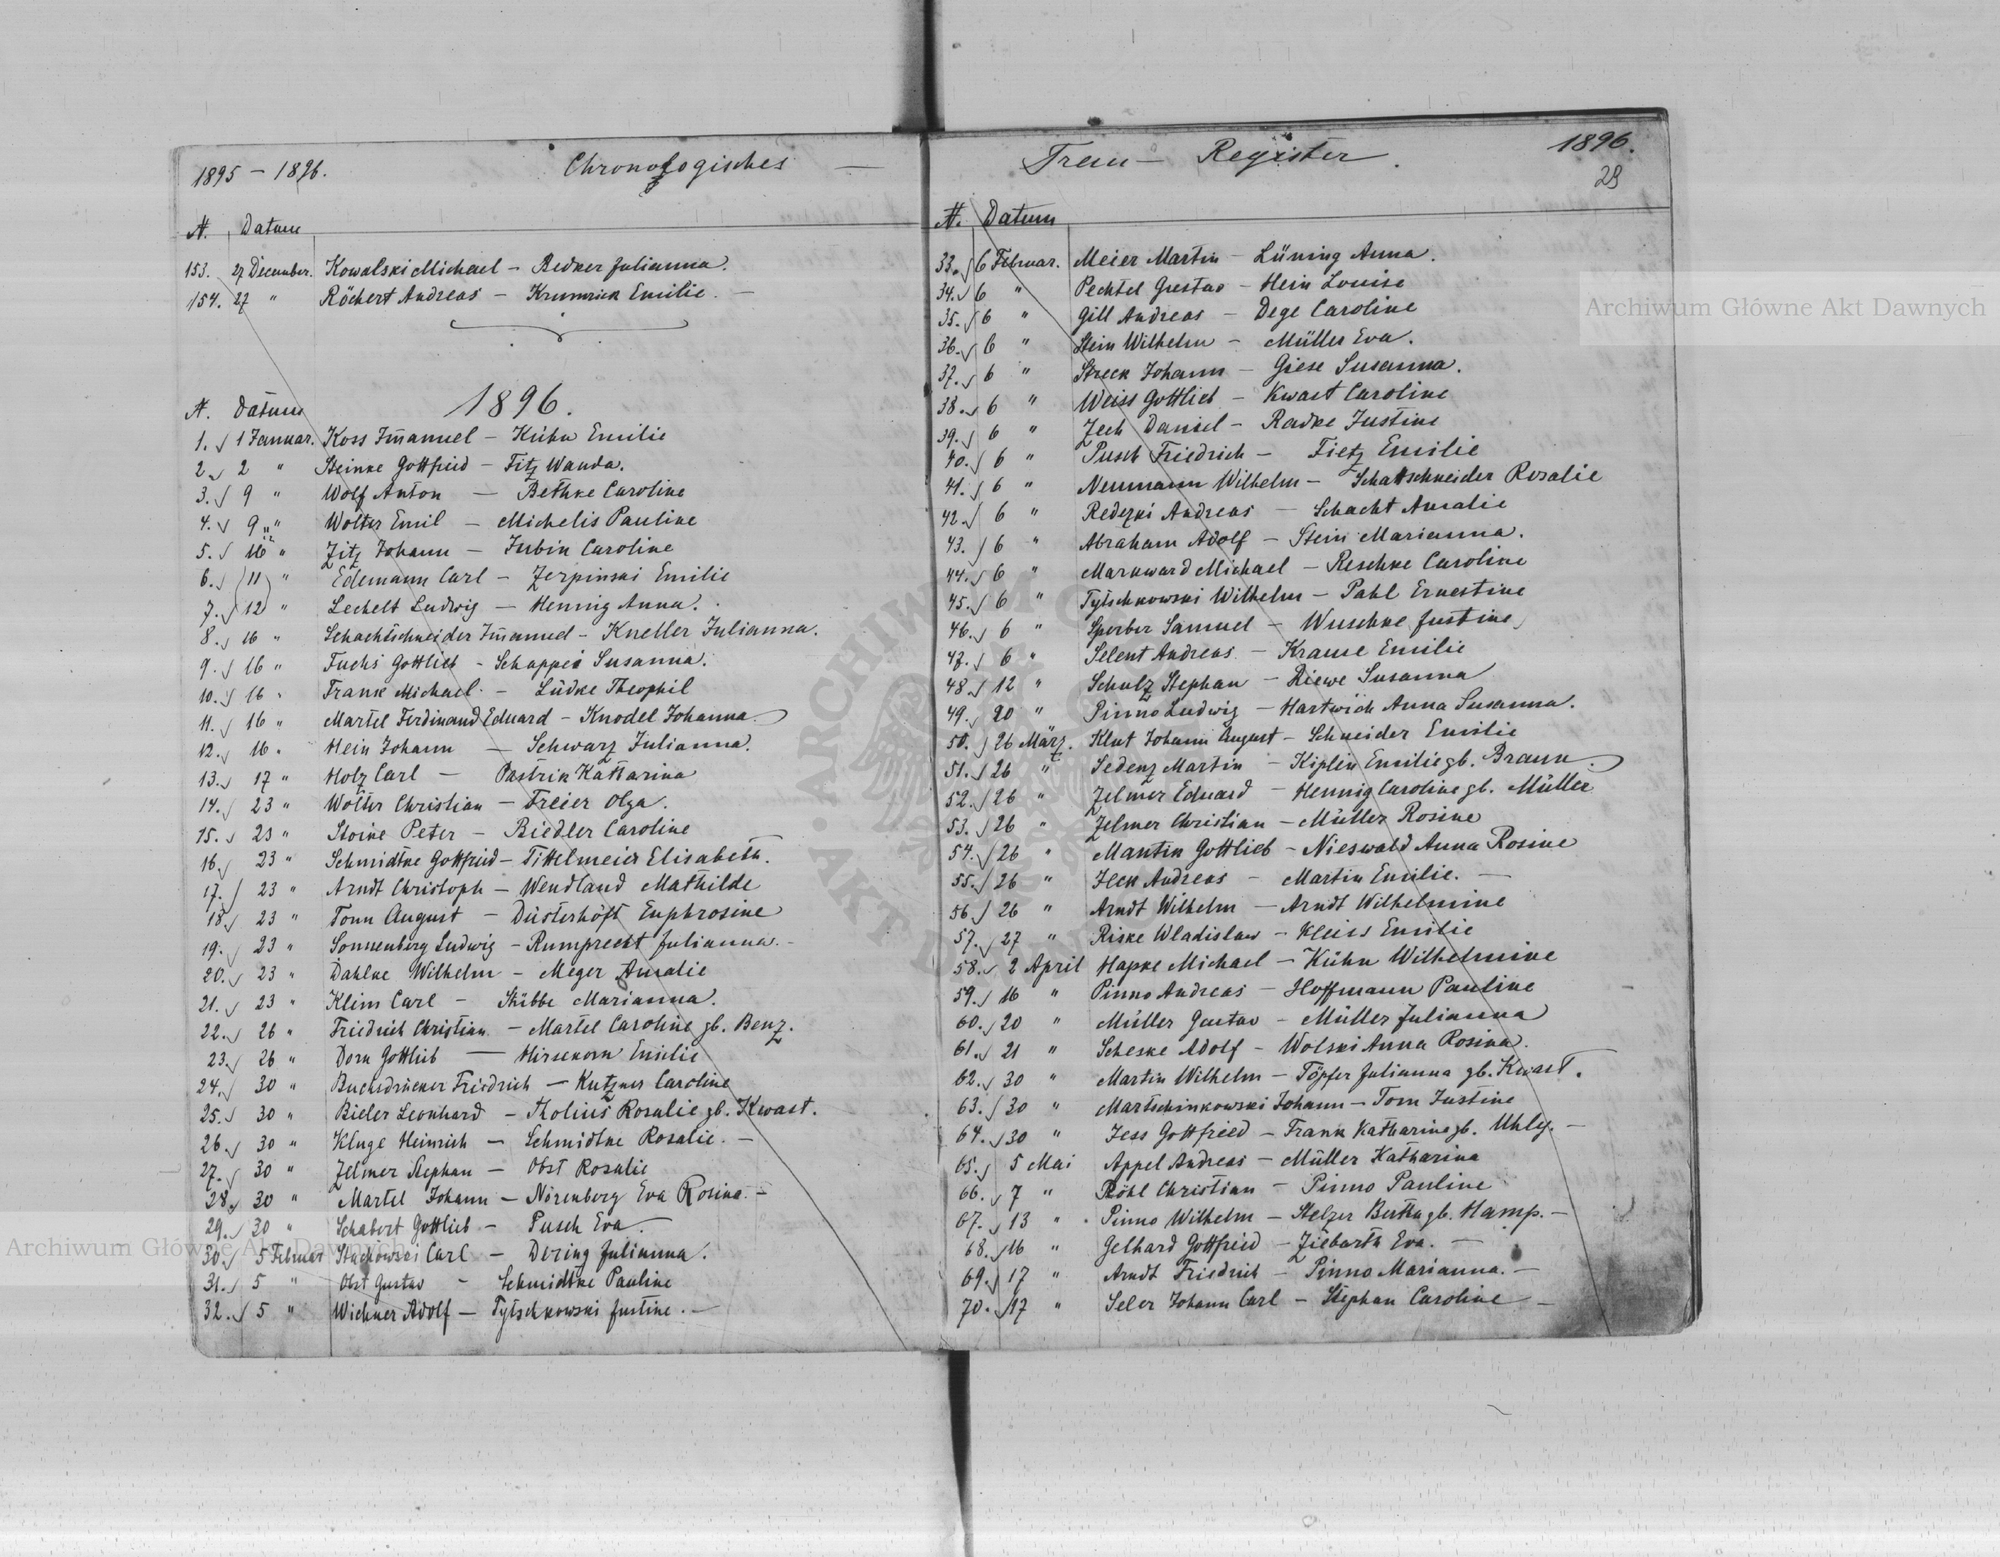 1895 – 1896. Chronologisches —
N. Datum
153. 27 December. Kowalski Michael – Redker Julianna.
154. 27 " Röchert Andreas – Krumrick Emilie. —
1896.
N. Datum
1. 1 Januar. Koss Im̄anuel – Kühn Emilie
2. 2 " Steinke Gottfried – Fitz Wanda.
3. 9 " Wolf Anton — Bethke Caroline
4. 9 " Wolter Emil – Michelis Pauline
5. 10 " Zitz Johann – Jubin Caroline
6. 11 " Edemann Carl – Zerpinski Emilie
7. 12 " Lechelt Ludwig – Hennig Anna.
8. 16 " Schachtschneider Im̄anuel – Kneller Julianna.
9. 16 " Fuchs Gottlieb – Schappei Susanna.
10. 16 " Frank Michael. – Lüdke Theophil
11. 16 " Martel Ferdinand Eduard – Knodel Johanna.
12. 16 " Hein Johann — Schwarz Julianna.
13. 17 " Holz Carl — Pastrik Katharina
14. 23 " Wolter Christian – Freier Olga.
15. 23 " Stoike Peter – Riedler Caroline
16. 23 " Schmidtke Gottfried – Tittelmeier Elisabeth.
17. 23 " Arndt Christoph – Wendland Mathilde
18. 23 " Tonn August – Düsterhöft Euphrosine
19. 23 " Sonnenberg Ludwig – Rumprecht Julianna. –
20. 23 " Dahlke Wilhelm – Meger Amalie
21. 23 " Klim Carl – Stübbe Marianna.
22. 26 " Friedrich Christian – Martel Caroline gb. Benz.
23. 26 " Dorn Gottlieb — Hirsekorn Emilie
24. 30 " Buchdrucker Friedrich – Kutzner Caroline
25. 30 " Bieler Leonhard – Tholius Rosalie gb. Kwast.
26. 30 " Kluge Heinrich – Schmidtke Rosalie. –
27. 30 " Zelmer Stephan – Obst Rosalie
28. 30 " Martel Johann – Nörenberg Eva Rosina. –
29. 30 " Schabert Gottlieb – Pusch Eva
30. 5 Februar Stachowski Carl – Döring Julianna.
31. 5 " Obst Gustav – Schmidtke Pauline
32. 5 " Wichner Adolf – Tytschkowski Justine. –
Trau – Register. 1896.
29
N. Datum
33. 6 Februar. Meier Martin – Lüning Anna.
34. 6 " Pechtel Gustav – Hein Louise
35. 6 " Gill Andreas – Dege Caroline
36. 6 " Stein Wilhelm – Müller Eva.
37. 6 " Streck Johann – Giese Susanna.
38. 6 " Weiss Gottlieb – Kwast Caroline
39. 6 " Zech Daniel – Radke Justine
40. 6 " Pusch Friedrich – Fietz Emilie
41. 6 " Neumann Wilhelm – Schattschneider Rosalie
42. 6 " Redezki Andreas – Schacht Amalie
43. 6 " Abraham Adolf – Stein Marianna.
44. 6 " Markward Michael – Reschke Caroline
45. 6 " Tytschkowski Wilhelm – Pahl Ernestine
46. 6 " Sperber Samuel – Wuschke Justine
47. 6 " Selent Andreas – Krause Emilie
48. 12 " Schulz Stephan – Riewe Susanna
49. 20 " Pinno Ludwig – Hartwich Anna Susanna.
50. 26 März. Klut Johann August – Schneider Emilie
51. 26 " Sedenz Martin – Kiplin Emilie gb. Braun.
52. 26 " Zelmer Eduard – Hennig Caroline gb. Müller
53. 26 " Zelmer Christian – Müller Rosine
54. 26 " Mantik Gottlieb – Nieswald Anna Rosine
55. 26 " Heck Andreas – Martin Emilie. —
56. 26 " Arndt Wilhelm – Arndt Wilhelmine
57. 27 " Riske Wladislaw – Kleiss Emilie
58. 2 April Hapke Michael – Kühn Wilhelmine
59. 16 " Pinno Andreas – Hoffmann Pauline
60. 20 " Müller Gustav – Müller Julianna
61. 21 " Scheske Adolf – Wolski Anna Rosina.
62. 30 " Martin Wilhelm – Töpfer Julianna gb. Kwast.
63. 30 " Martschinkowski Johann – Tonn Justine
64. 30 " Jess Gottfried – Frank Katharine gb. Uhly. –
65. 5 Mai Appel Andreas – Müller Katharina
66. 7 " Röhl Christian – Pinno Pauline
67. 13 " Pinno Wilhelm – Stelzer Bertha gb. Hamp. –
68. 16 " Gelhard Gottfried – Ziebarth Eva. —
69. 17 " Arndt Friedrich – Pinno Marianna. –
70. 17 " Seler Johann Carl – Stephan Caroline –
Archiwum Główne Akt Dawnych
Archiwum Główne Akt Dawnych